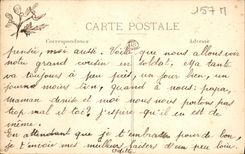 1574
CARTE POSTALE
Correspondance
Adresse
pensée, moi aussi. Voilà que nous allons voir
notre grand cousin en soldat. Ma tante
va toujours à peu près, un jour bien, un
journo moins bien, Quand à nous: papa,
maman denis et moi nous nous portons pas
trop mal et toi? J'espère qu'il en est de
même.
En attendant que je t'embrasse pour de bon,
je t'envoie mes meilleurs baisers d'un peu loin.
Odette